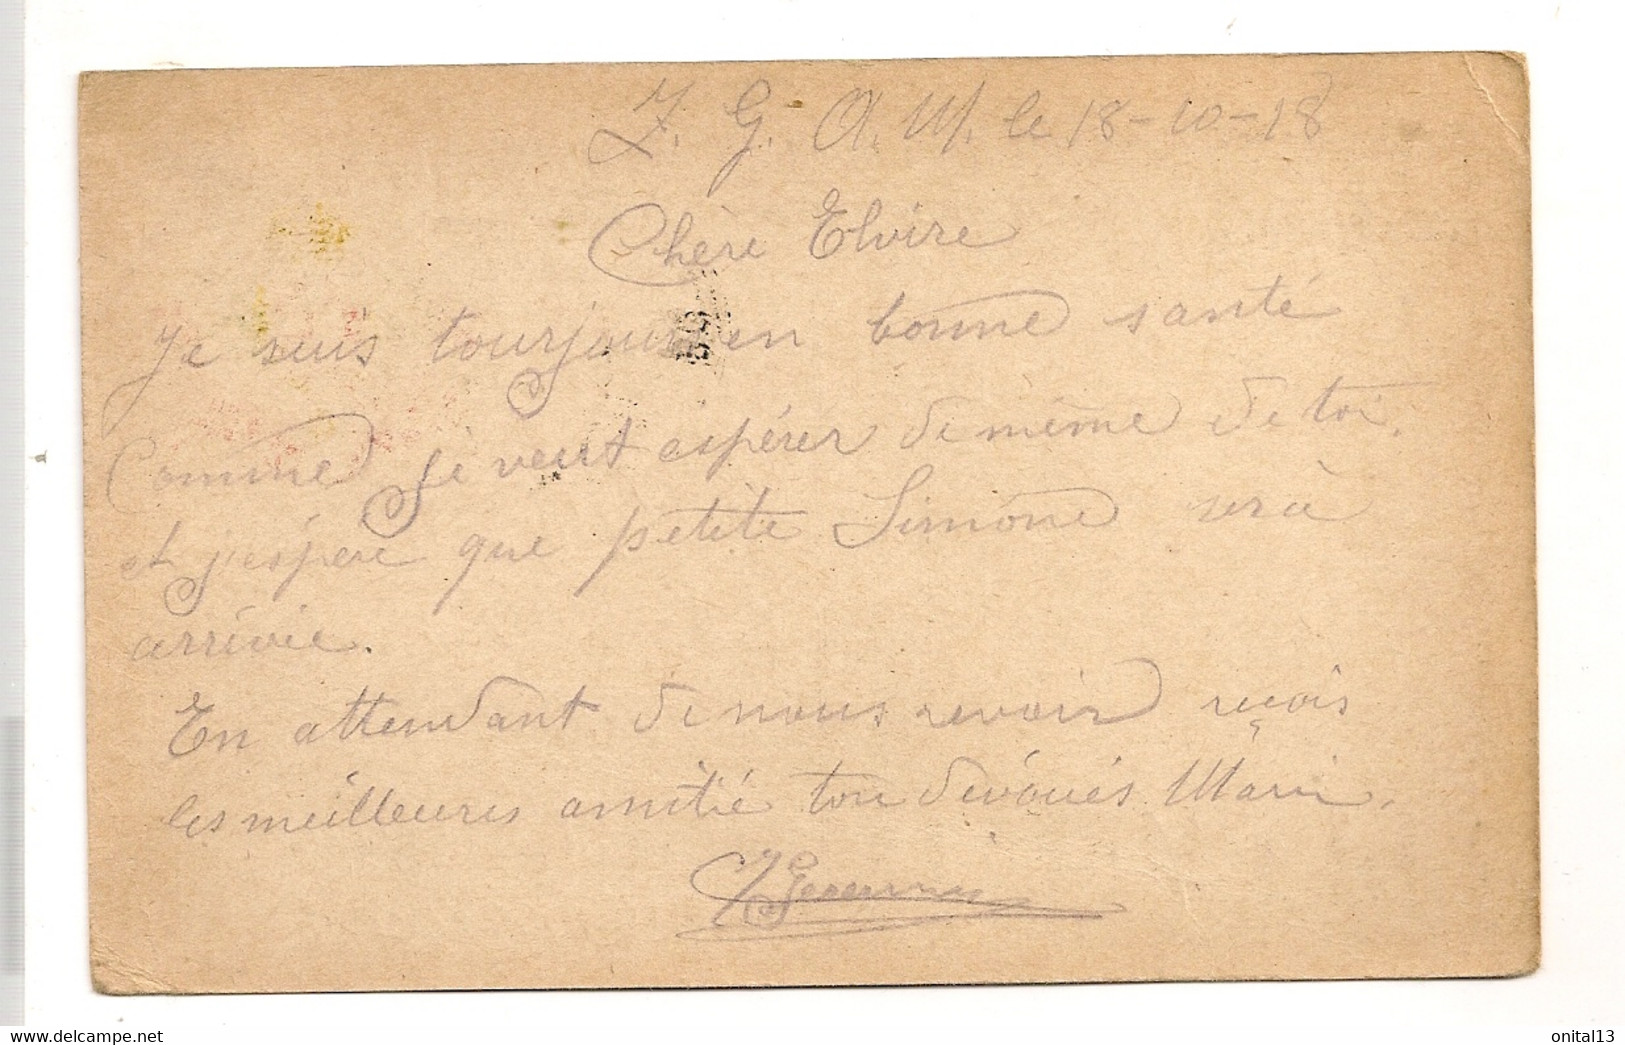 Z. G. A. M. le 18-10-18
Chère Elvire
Je suis tourjours en bonne santé
Comme je veut espérer de même de toi.
et j'espère que petite Simone serà
arrivie.
En attendant de nous revoir reçois
les meilleures amitié ton dévoués Mari.
www.delcampe.net
onital13